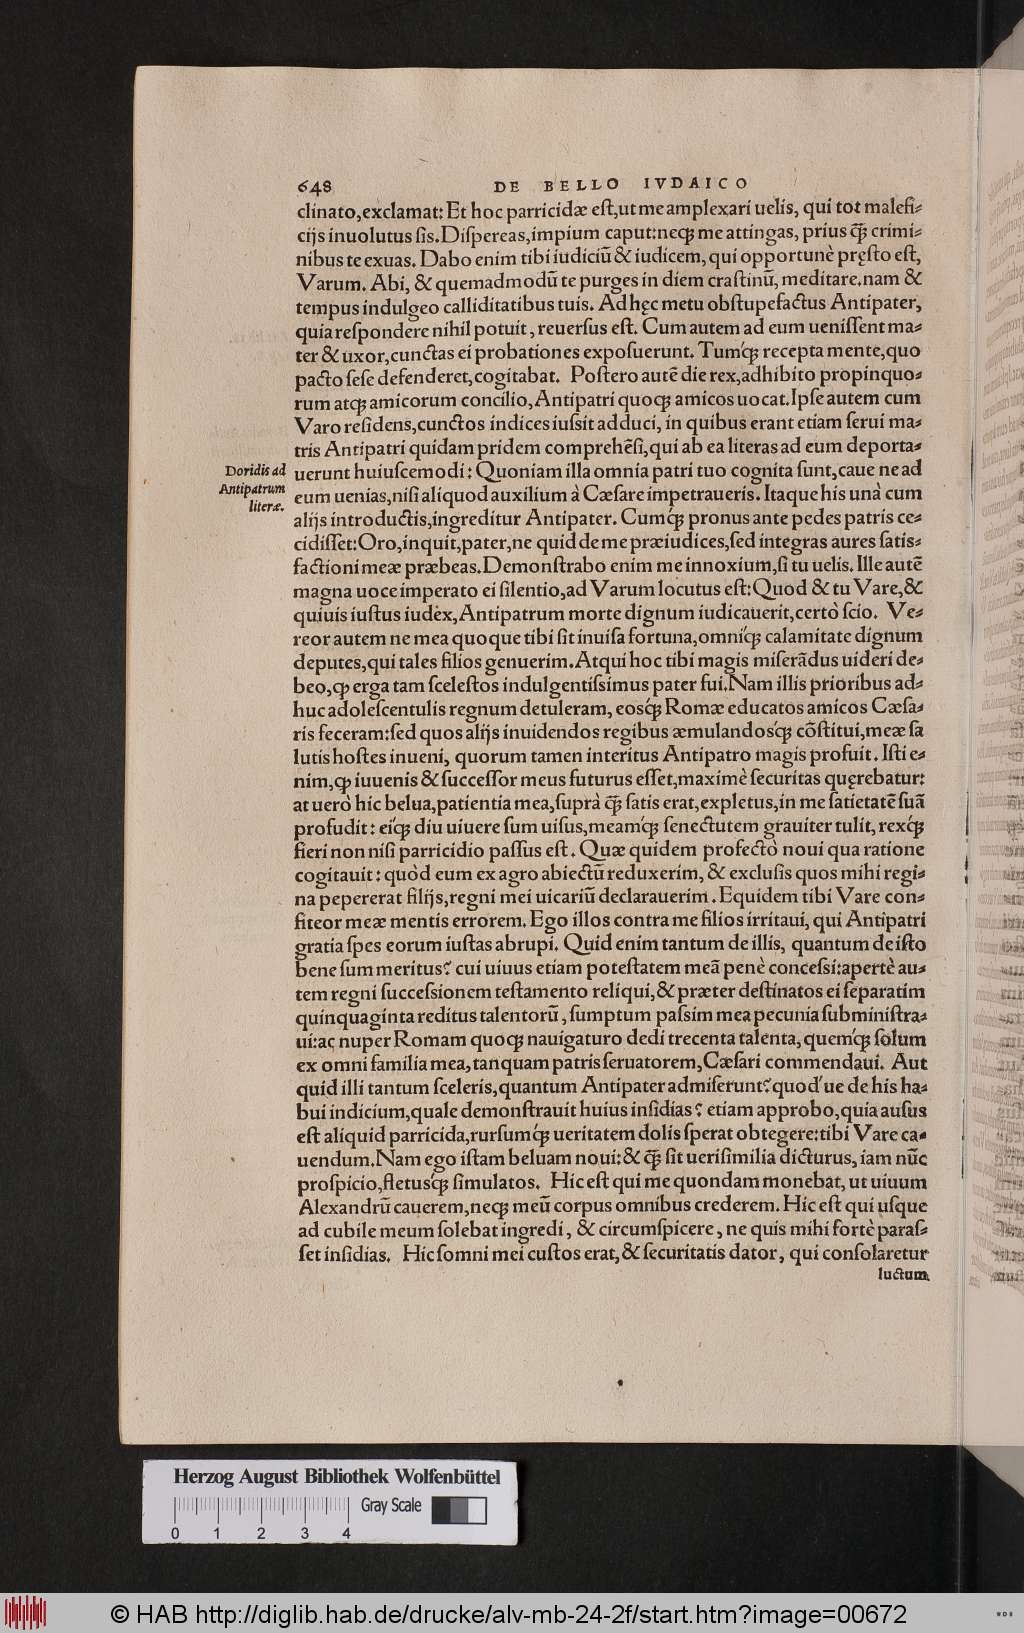 648 DE BELLO IVDAICO
clinato,exclamat: Et hoc parricidæ eſt,ut me amplexari uelis, qui tot malefi-
cijs inuolutus ſis. Diſpereas, impium caput: neq́ꝫ me attingas, prius q̃ꝫ crimi-
nibus te exuas. Dabo enim tibi iudiciũ & iudicem, qui opportunè pręſto eſt,
Varum. Abi, & quemadmodũ te purges in diem craſtinũ, meditare. nam &
tempus indulgeo calliditatibus tuis. Ad hęc metu obſtupefactus Antipater,
quia reſpondere nihil potuit, reuerſus eſt. Cum autem ad eum ueniſſent ma-
ter & uxor, cunctas ei probationes expoſuerunt. Tumq́ꝫ recepta mente, quo
pacto ſeſe defenderet, cogitabat. Poſtero autẽ die rex, adhibito propinquo-
rum atqꝫ amicorum concilio, Antipatri quoqꝫ amicos uocat. Ipſe autem cum
Varo reſidens, cunctos indices iuſsit adduci, in quibus erant etiam ſerui ma-
tris Antipatri quidam pridem comprehẽſi, qui ab ea literas ad eum deporta-
Doridis ad
Antipatrum
literæ.
uerunt huiuſcemodi: Quoniam illa omnia patri tuo cognita ſunt, caue ne ad
eum uenias, niſi aliquod auxilium à Cæſare impetraueris. Itaque his unà cum
alijs introductis, ingreditur Antipater. Cumq́ꝫ pronus ante pedes patris ce-
cidiſſet: Oro, inquit, pater, ne quid de me præiudices, ſed integras aures ſatis-
factioni meæ præbeas. Demonſtrabo enim me innoxium, ſi tu uelis. Ille autẽ
magna uoce imperato ei ſilentio, ad Varum locutus eſt: Quod & tu Vare, &
quiuis iuſtus iudex, Antipatrum morte dignum iudicauerit, certò ſcio. Ve-
reor autem ne mea quoque tibi ſit inuiſa fortuna, omniq́ꝫ calamitate dignum
deputes, qui tales filios genuerim. Atqui hoc tibi magis miſerãdus uideri de-
beo, ꝙ erga tam ſceleſtos indulgentiſsimus pater fui. Nam illis prioribus ad-
huc adoleſcentulis regnum detuleram, eosq́ꝫ Romæ educatos amicos Cæſa-
ris feceram: ſed quos alijs inuidendos regibus æmulandosq́ꝫ cõſtitui, meæ ſa
lutis hoſtes inueni, quorum tamen interitus Antipatro magis profuit. Iſti e-
nim, ꝙ iuuenis & ſucceſſor meus futurus eſſet, maximè ſecuritas quęrebatur:
at uerò hic belua, patientia mea, ſuprà q̃ꝫ ſatis erat, expletus, in me ſatietatẽ ſuã
profudit: eiq́ꝫ diu uiuere ſum uiſus, meamq́ꝫ ſenectutem grauiter tulit, rexq́ꝫ
fieri non niſi parricidio paſſus eſt. Quæ quidem profectò noui qua ratione
cogitauit: quòd eum ex agro abiectũ reduxerim, & excluſis quos mihi regi-
na pepererat filijs, regni mei uicariũ declarauerim. Equidem tibi Vare con-
fiteor meæ mentis errorem. Ego illos contra me filios irritaui, qui Antipatri
gratia ſpes eorum iuſtas abrupi. Quid enim tantum de illis, quantum de iſto
bene ſum meritus? cui uiuus etiam poteſtatem meã penè conceſsi: apertè au-
tem regni ſucceſsionem teſtamento reliqui, & præter deſtinatos ei ſeparatim
quinquaginta reditus talentorũ, ſumptum paſsim mea pecunia ſubminiſtra-
ui: ac nuper Romam quoqꝫ nauigaturo dedi trecenta talenta, quemq́ꝫ ſolum
ex omni familia mea, tanquam patris ſeruatorem, Cæſari commendaui. Aut
quid illi tantum ſceleris, quantum Antipater admiſerunt? quod'ue de his ha-
bui indicium, quale demonſtrauit huius inſidias? etiam approbo, quia auſus
eſt aliquid parricida, rurſumq́ꝫ ueritatem dolis ſperat obtegere: tibi Vare ca-
uendum. Nam ego iſtam beluam noui: & q̃ꝫ ſit ueriſimilia dicturus, iam nũc
proſpicio, fletusq́ꝫ ſimulatos. Hic eſt qui me quondam monebat, ut uiuum
Alexandrũ cauerem, neqꝫ meũ corpus omnibus crederem. Hic eſt qui uſque
ad cubile meum ſolebat ingredi, & circumſpicere, ne quis mihi fortè paraſ-
ſet inſidias. Hic ſomni mei cuſtos erat, & ſecuritatis dator, qui conſolaretur
luctum
Herzog August Bibliothek Wolfenbüttel
0 1 2 3 4 Gray Scale
© HAB http://diglib.hab.de/drucke/alv-mb-24-2f/start.htm?image=00672